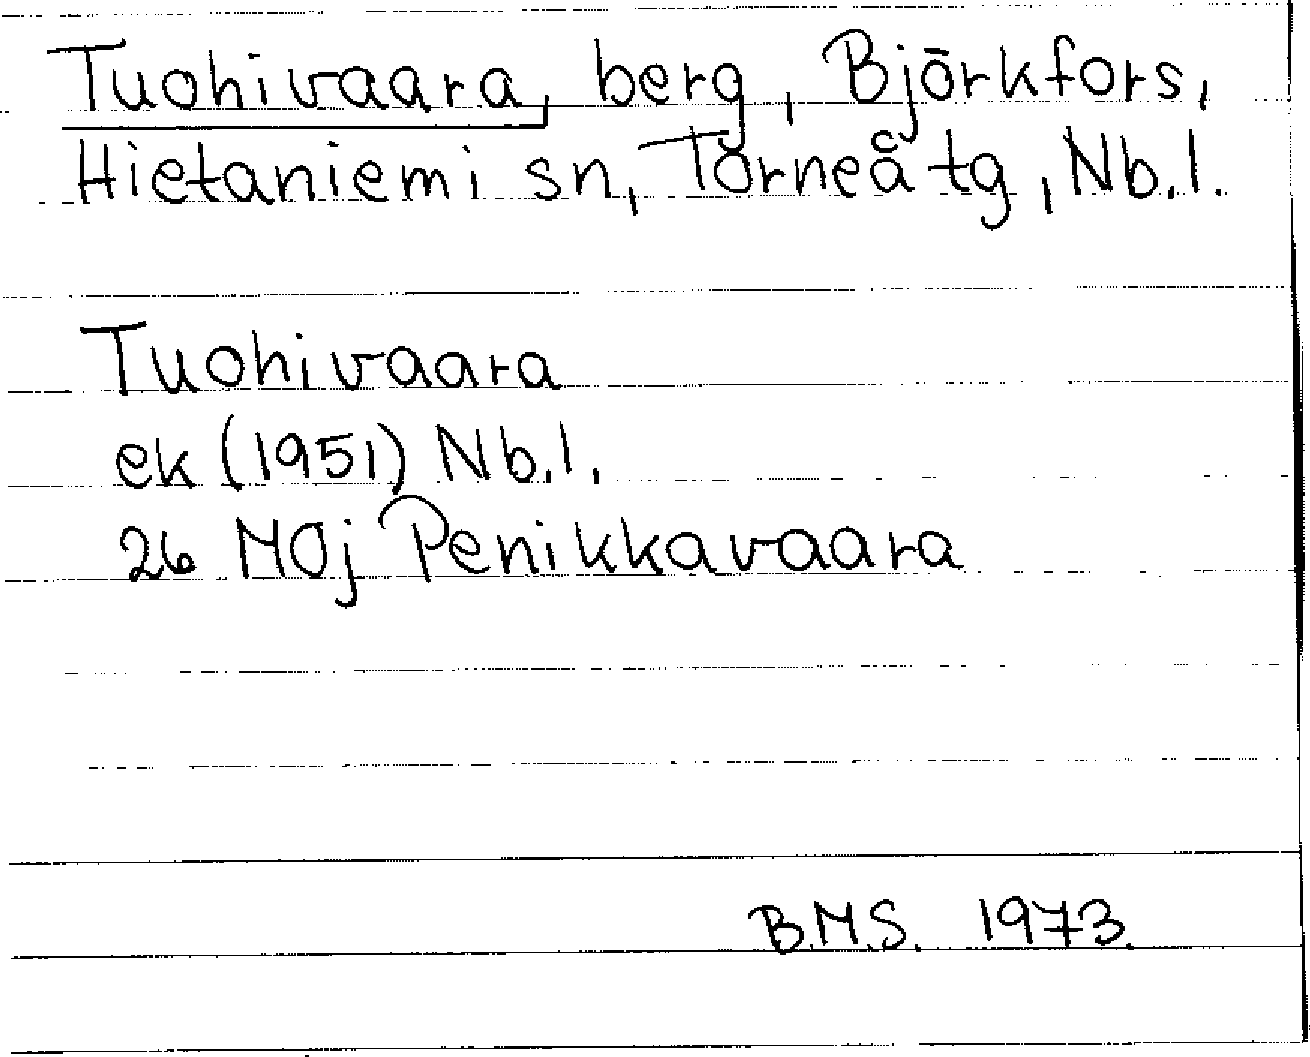 Tuohivaara, berg, Björkfors,
Hietaniemi sn, Torneå tg, Nb.l.
Tuohivaara
ek (1951) Nb.l.
26 MOj Penikkavaara
B.M.S. 1973.